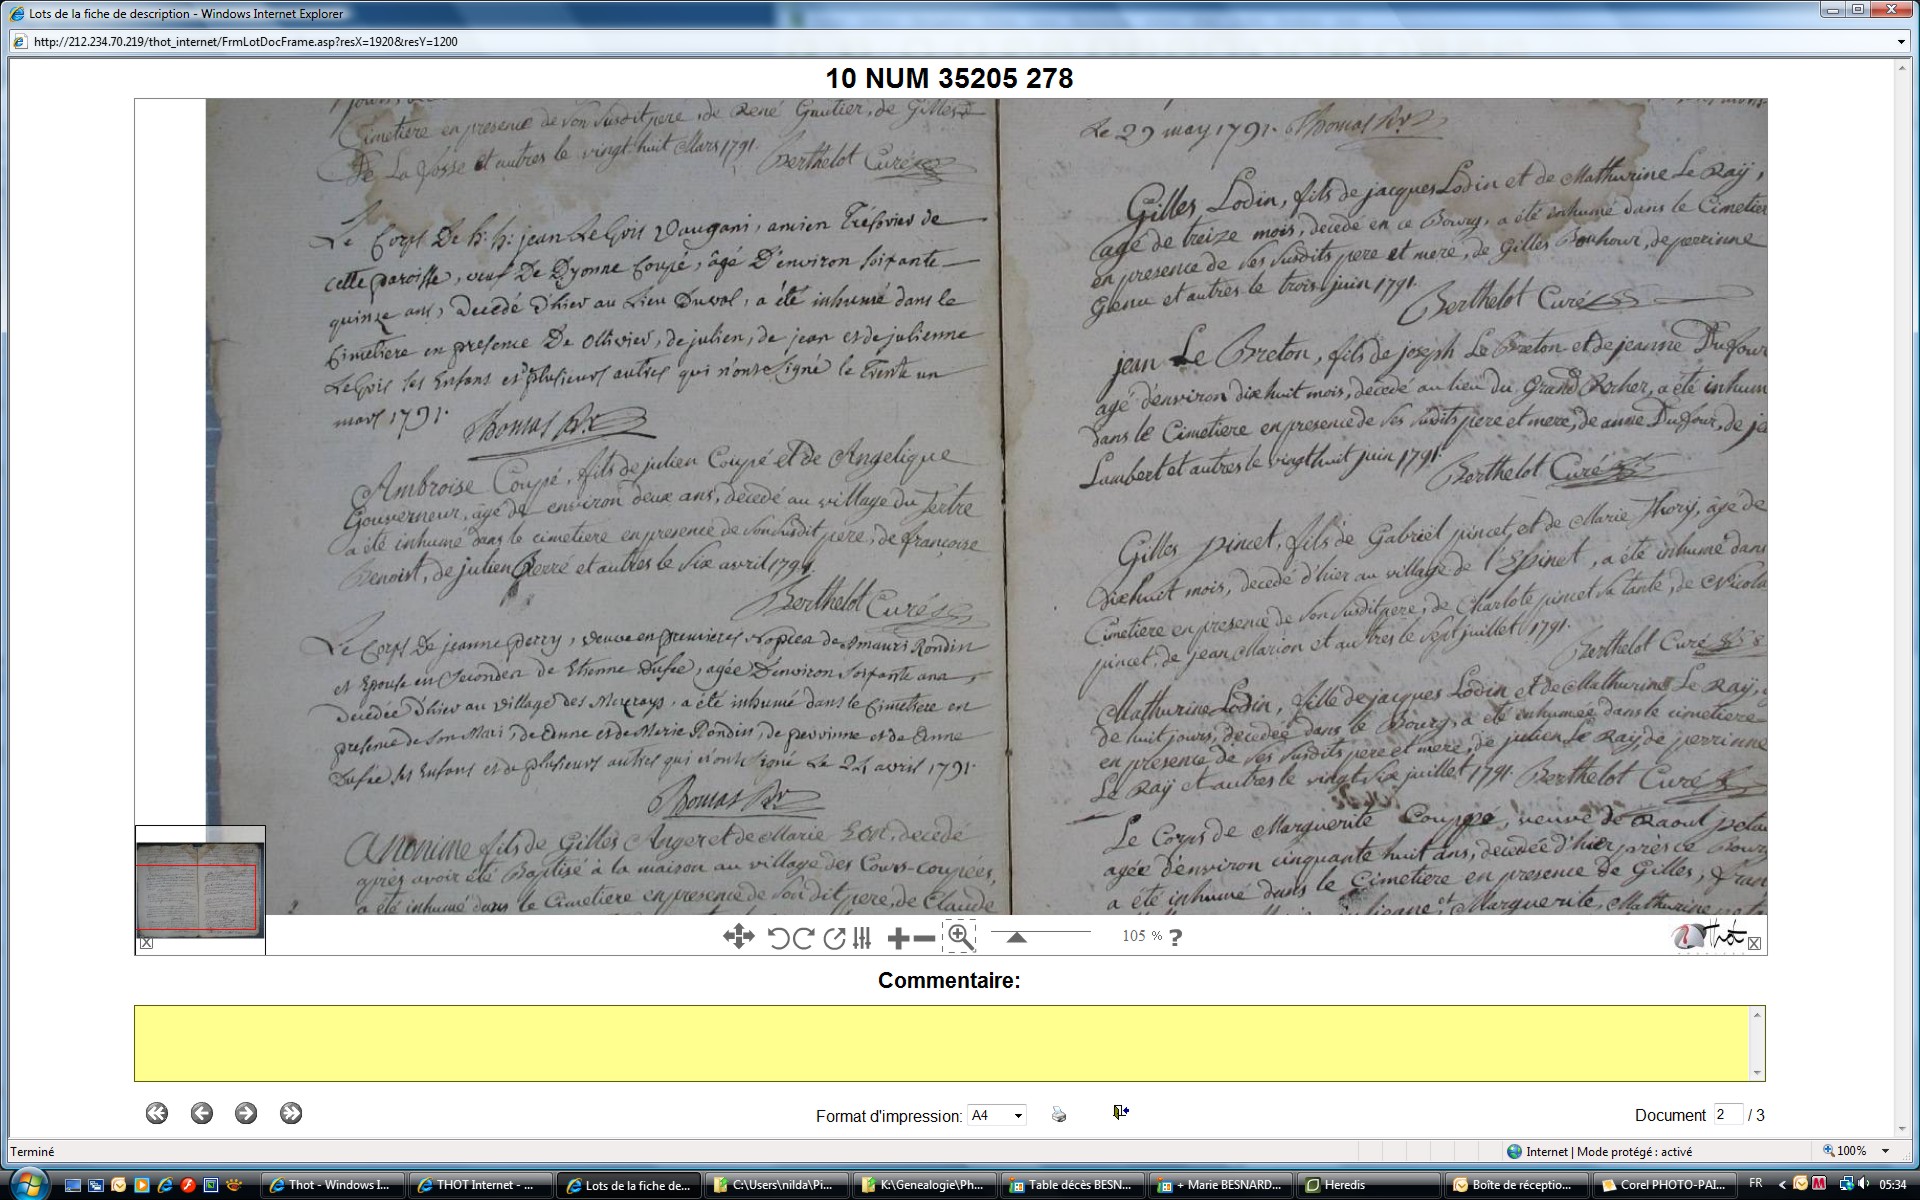 Lots de la fiche de description - Windows Internet Explorer
http://212.234.70.219/thot_internet/FrmLotDocFrame.asp?resX=1920&resY=1200
10 NUM 35205 278
Cimetiere en presence de son susdit pere, de René Gautier, de Gilles
De La fosse et autres le vingt huit Mars 1791.
Berthelot Curé
Le Corps De h: h: jean LeGois Vaugani, ancien Trésorier de
cette paroisse, veuf De Dyonne Coupé, âgé D'environ soixante
quinze ans, Decédé d'hier au Lieu Duval, a été inhumé dans le
Cimetiere en presence De Ollivier, de julien, de jean et de julienne
LeGois ses Enfans et plusieurs autres qui n'ont signé le Trente un
mars 1791.
Thomas Rr.
Ambroise Coupé, fils de julien Coupé et de Angelique
Gouverneur, âgé de environ deux ans, decédé au village du Tertre
a été inhumé dans le cimetiere en presence de son susdit pere, de françoise
Benoist, de julien Perré et autres le six avril 1791.
Berthelot Curé
Le Corps De jeanne perry, veuve en premieres Nopces de amaury Rondin
et Epouse en Secondes de Etienne Dufée, agée D'environ soixante ans,
Decédée d'hier au village des , a été inhumé dans le Cimetiere en
presence de son Mari, de Anne et de Marie Rondin, de perrinne et de Anne
Dufée ses Enfans et de plusieurs autres qui n'ont signé Le 24 avril 1791.
Thomas Rr
Anonime fils de Gilles Anger et de Marie , decédé
après avoir été Baptisé à la maison au village des Cours-coupées,
a été inhumé dans le Cimetiere en presence de son dit pere, de Claude
Le 29 may 1791. Thomas Rr
Gilles Lodin, fils de jacques Lodin et de Mathurine Le Raÿ,
agé de treize mois, decédé en ce Bourg, a été inhumé dans le Cimetier
en presence de ses susdits pere et mere, de Gilles Bonhour, de perrinne
Genu et autres le trois juin 1791.
Berthelot Curé
jean Le Breton, fils de joseph Le Breton et de jeanne Dufour
agé d'environ dix huit mois, decédé au lieu du Grand Rocher, a été inhum
dans le Cimetiere en presence de ses susdits pere et mere, de anne Dufour, de je
Lambert et autres le vingt huit juin 1791.
Berthelot Curé
Gilles pincet, fils de Gabriël pincet, et de Marie Thorÿ, âge de
dix huit mois, decedé d'hier au village de l'Epinet, a été inhumé dans
Cimetiere en presence de son susdit pere, de Charlote pincet sa tante, de Nicola
pincet, de jean Marion et autres le sept juillet 1791.
Berthelot Curé
Mathurine Lodin, fille de jacques Lodin et de Mathurine Le Raÿ,
de huit jours, decedeé dans le Bourg, a été inhumée dans le cimetiere
en presence de ses susdits pere et mere, de julien Le Ray, de perrinne
Le Raÿ et autres le vingt six juillet 1791. Berthelot Curé
Le Corps de Marguerite Couppé, veuve de Raoul
agée d'environ cinquante huit ans, decedée d'hier près ce Bourg
a été inhumé dans le Cimetiere en presence de Gilles, fran
julienne et Marguerite, Mathurine
105 %
?
Thot
Commentaire:
Format d'impression: A4
Document 2 / 3
Terminé
Internet | Mode protégé : activé
100%
Thot - Windows I...
THOT Internet - ...
Lots de la fiche de...
C:\Users\nilda\Pi...
K:\Genealogie\Ph...
Table décès BESN...
+ Marie BESNARD...
Heredis
Boîte de réceptio...
Corel PHOTO-PAI...
FR
05:34